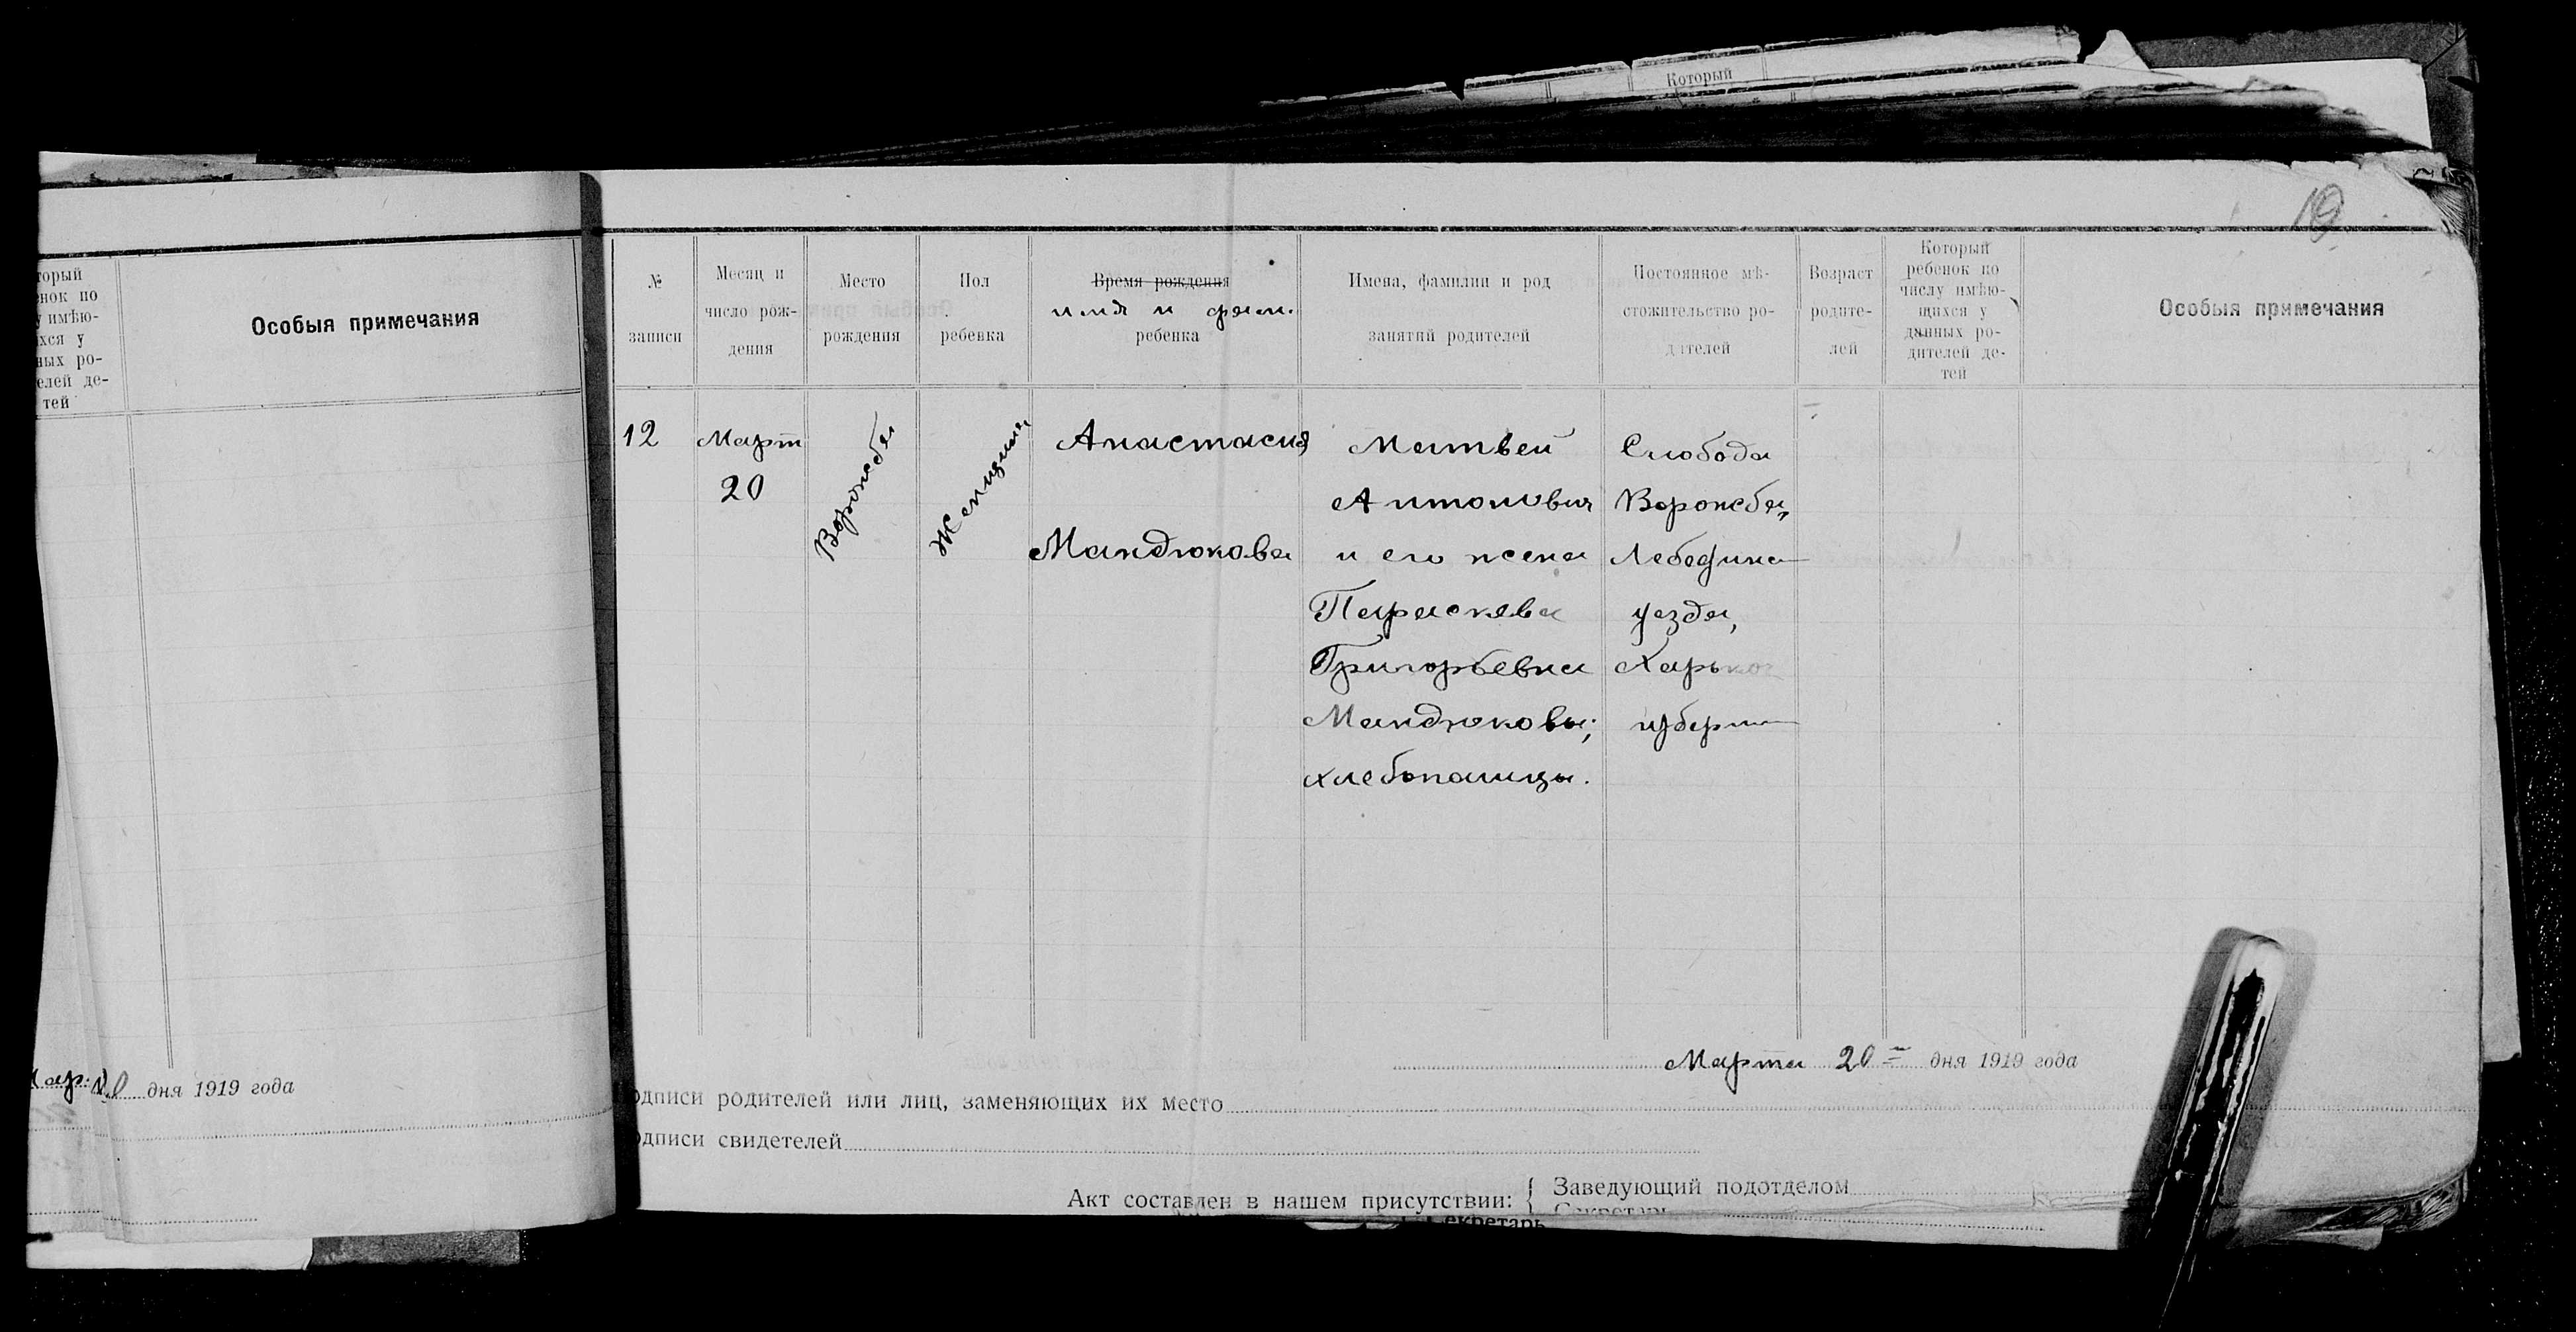 Который
торый
енок по
у имѣю-
хся у
ных ро-
елей де-
тей
Особыя примечания
дня 1919 года
19
№
записи
Месяц и
число рож-
дения
Место
рождения
Пол
ребенка
Время рождения
имя и фам.
ребенка
Имена, фамилии и род
занятий родителей
Постоянное мѣ-
стожительство ро-
дителей
Возраст
родите-
лей
Который
ребенок по
числу имѣю-
щихся у
данных ро-
дителей де-
тей
Особыя примечания
12
Март
20
Ворожба
Женщина
Анастасия
Мандюкова
Матвей
Антонович
и его жена
Параскева
Григорьевна
Мандюковы;
хлебопашцы.
Слобода
Ворожба,
Лебедина
уезда,
Харьков
губерни
Марта 20 дня 1919 года
одписи родителей или лиц, заменяющих их место
одписи свидетелей
Акт составлен в нашем присутствии:
Заведующий подотделом
Секретарь
екретарь